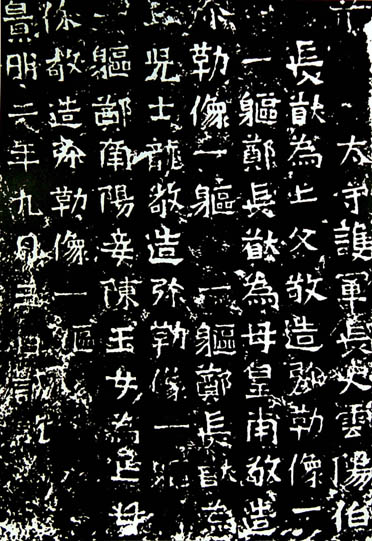 太守護軍長史雲陽伯
長猷為亡父敬造弥勒像一
一軀鄭長猷為母皇甫敬造
勒像一軀一軀鄭長猷為
亡兒士龍敬造弥勒像一軀
一軀鄭南陽妾陳玉女為亡母
徐敬造弥勒像一軀
景明二年九月三日誡訖